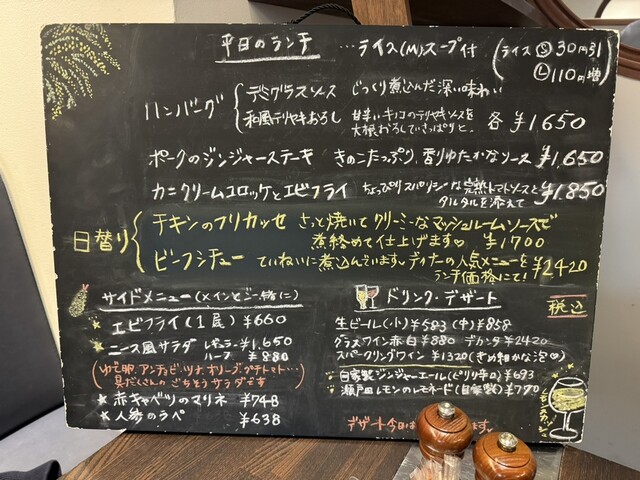 平日のランチ …ライス(M)スープ付 (ライス Ⓢ30円引
Ⓛ110円増)
ハンバーグ
デミグラスソース じっくり煮込んだ深い味わい
和風テリヤキおろし 甘辛いキノコのテリヤキソースを
大根おろしでさっぱりと。 各¥1650
ポークのジンジャーステーキ きのこたっぷり、香りゆたかなソース ¥1,650
カニクリームコロッケとエビフライ ちょっぴりスパイシーな完熟トマトソースと
タルタルを添えて ¥1,850
日替り
チキンのフリカッセ さっと焼いてクリーミーなマッシュルームソースで
煮絡めて仕上げます♡ ¥1700
ビーフシチュー ていねいに煮込んでいます。ディナーの人気メニューを
ランチ価格にて! ¥2420
サイドメニュー(メインとご一緒に)
エビフライ(1尾) ¥660
ニース風サラダ レギュラー ¥1,650
ハーフ ¥880
(ゆで卵、アンチョビ、ツナ、オリーブ、プチトマト…
具だくさんのごちそうサラダです)
★赤キャベツのマリネ ¥748
★人参のラペ ¥638
ドリンク・デザート 税込
生ビール(小)¥583 (中)¥858
グラスワイン赤白¥880 デカンタ¥2420
スパークリングワイン ¥1320(きめ細かな泡♡)
自家製ジンジャーエール(ピリ辛口)¥693
瀬戸田レモンのレモネード(自家製)¥770
デザート今日は ます。